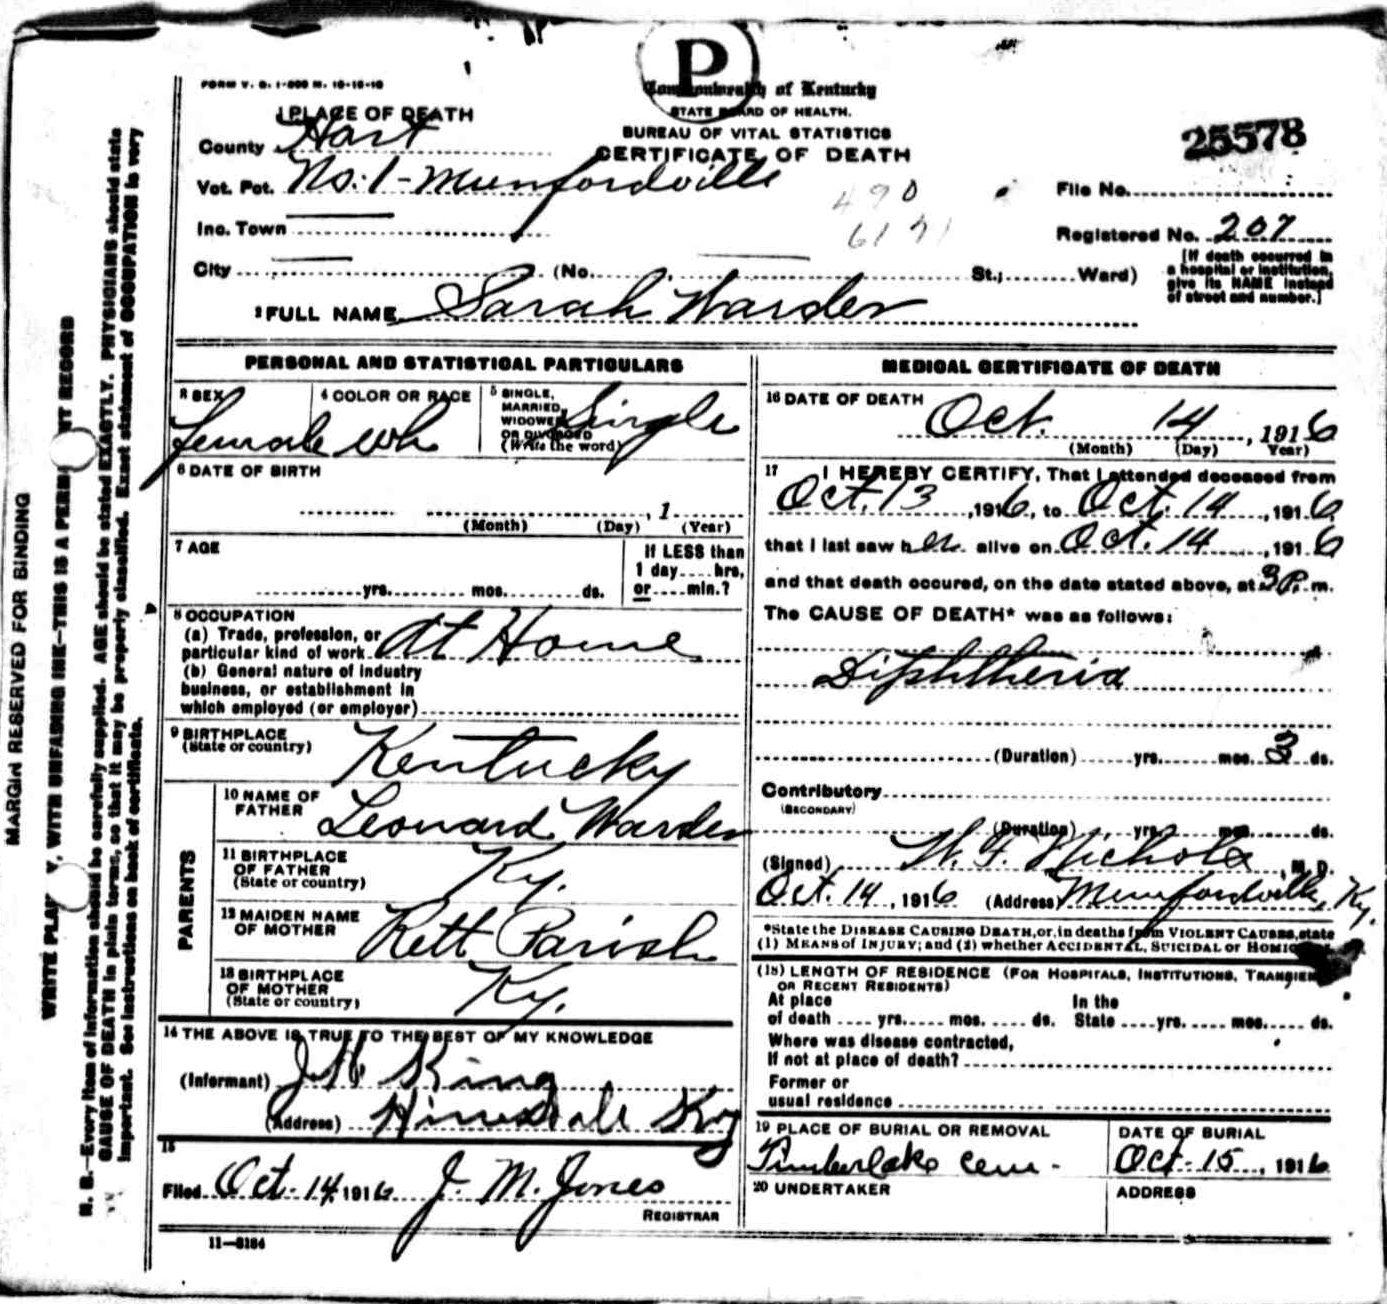 P
FORM V. S. 1-500 M. 10-16-10
Commonwealth of Kentucky
STATE BOARD OF HEALTH.
BUREAU OF VITAL STATISTICS
CERTIFICATE OF DEATH
25578
1 PLACE OF DEATH
County Hart
Vot. Pct. No. 1 - Munfordville
490
File No.
Inc. Town
Registered No. 207
City (No. St.; Ward)
[If death occurred in
a hospital or institution,
give its NAME instead
of street and number.]
2 FULL NAME Sarah Warder
PERSONAL AND STATISTICAL PARTICULARS
3 SEX 4 COLOR OR RACE 5 SINGLE,
MARRIED,
WIDOWED
OR DIVORCED
(Write the word)
female wh Single
6 DATE OF BIRTH
, 1
(Month) (Day) (Year)
7 AGE
yrs. mos. ds.
If LESS than
1 day hrs,
or min.?
8 OCCUPATION
(a) Trade, profession, or
particular kind of work At Home
(b) General nature of industry
business, or establishment in
which employed (or employer)
9 BIRTHPLACE
(State or country) Kentucky
PARENTS
10 NAME OF
FATHER Leonard Warder
11 BIRTHPLACE
OF FATHER
(State or country) Ky.
12 MAIDEN NAME
OF MOTHER Kett Parish
13 BIRTHPLACE
OF MOTHER
(State or country) Ky.
14 THE ABOVE IS TRUE TO THE BEST OF MY KNOWLEDGE
(Informant) J H King
(Address) Ky
15
Filed Oct-14, 1916 J. M. Jones
REGISTRAR
11-3184
MEDICAL CERTIFICATE OF DEATH
16 DATE OF DEATH
Oct. 14, 1916
(Month) (Day) Year)
17 I HEREBY CERTIFY, That I attended deceased from
Oct. 13, 1916, to Oct. 14, 1916,
that I last saw her alive on Oct. 14, 1916
and that death occured, on the date stated above, at 3 P. m.
The CAUSE OF DEATH* was as follows:
Diphtheria
(Duration) yrs. mos. 3 ds.
Contributory
(SECONDARY)
(Duration) yrs. mos. ds.
(Signed) W. F. Nichols, M. D.
Oct. 14, 1916 (Address) Munfordville, Ky.
*State the DISEASE CAUSING DEATH, or, in deaths from VIOLENT CAUSES, state
(1) MEANS of INJURY; and (2) whether ACCIDENTAL, SUICIDAL or
(18) LENGTH OF RESIDENCE (FOR HOSPITALS, INSTITUTIONS,
OR RECENT RESIDENTS)
At place In the
of death yrs. mos. ds. State yrs. mos. ds.
Where was disease contracted,
If not at place of death?
Former or
usual residence
19 PLACE OF BURIAL OR REMOVAL DATE OF BURIAL
Timberlake Cem - Oct-15, 1916
20 UNDERTAKER ADDRESS
MARGIN RESERVED FOR BINDING
WITH UNFADING INK—THIS IS A RECORD
N. B.—Every item of information should be carefully supplied. AGE should be stated EXACTLY. PHYSICIANS should state
CAUSE OF DEATH in plain terms, so that it may be properly classified. Exact statement of OCCUPATION is very
important. See instructions on back of certificate.